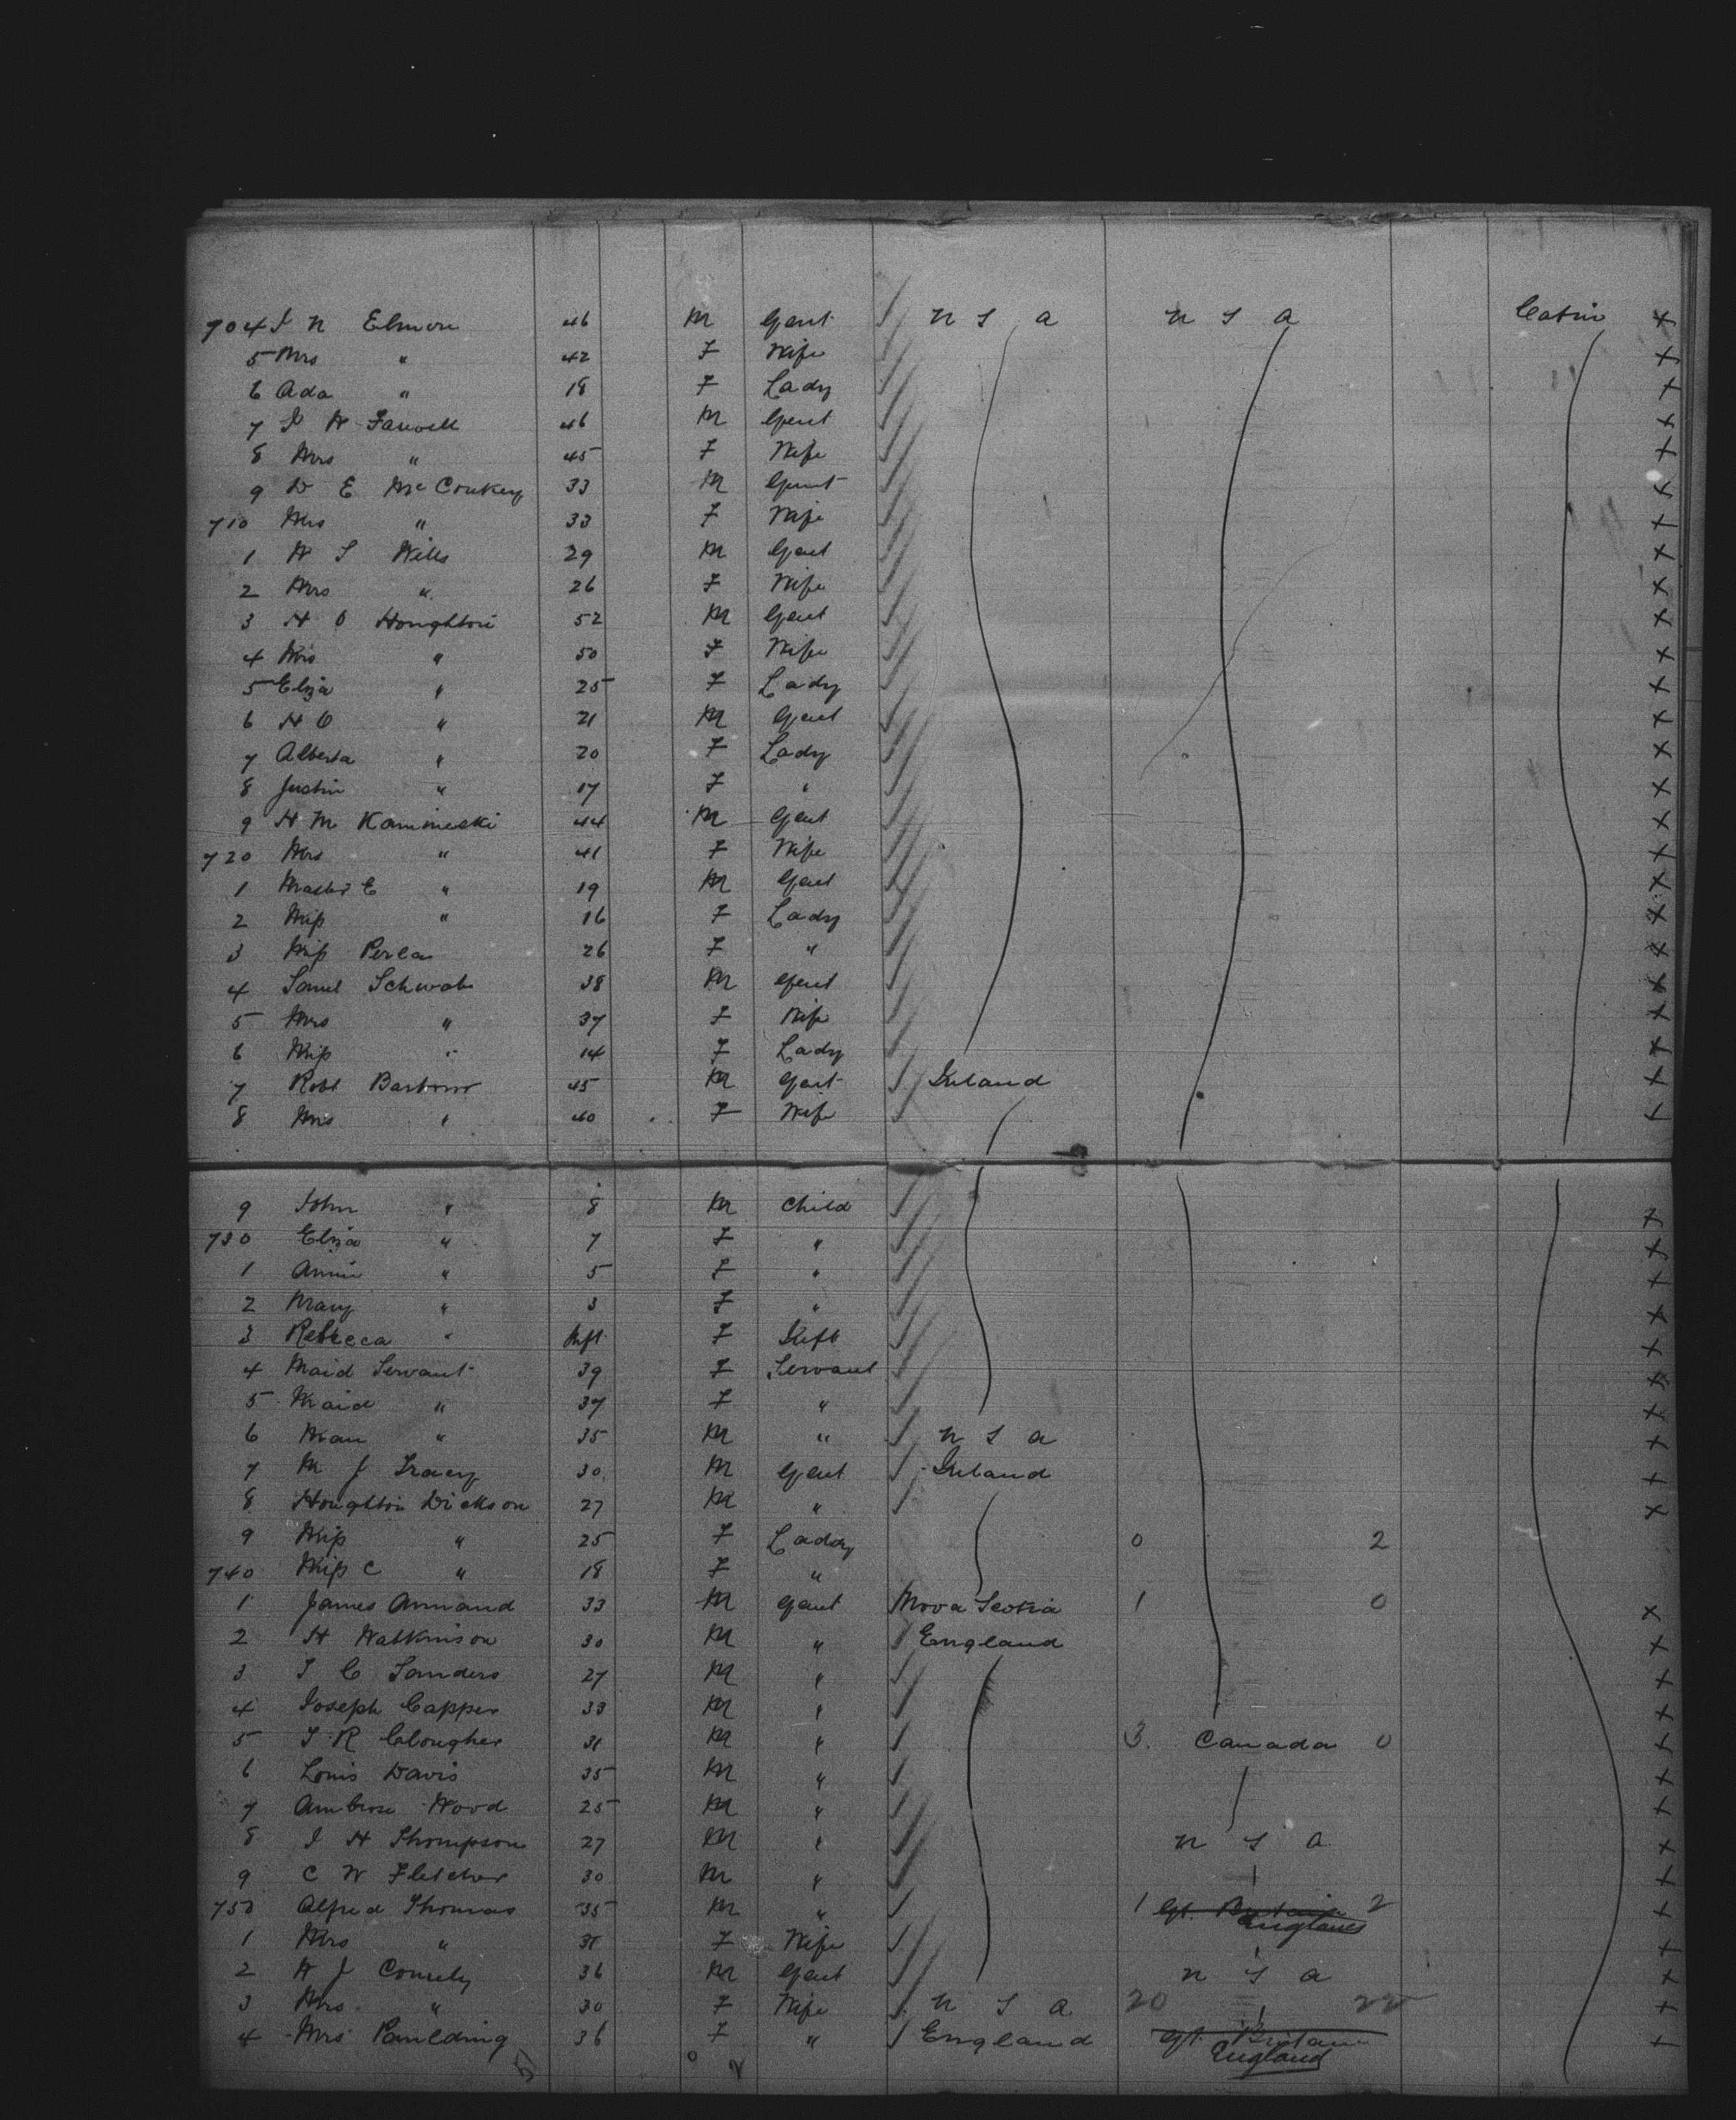 704 J N Elmon 46 M Gent U S A U S A Cabin X
5 Mrs " 42 F Wife X
6 Ada " 18 F Lady X
7 J W Farwell 46 M Gent X
8 Mrs " 45 F Wife X
9 D E McConkey 33 M Gent X
710 Mrs " 33 F Wife X
1 W S Wells 29 M Gent X
2 Mrs " 26 F Wife X
3 H O Houghton 52 M Gent X
4 Mrs " 50 F Wife X
5 Eliza " 25 F Lady X
6 H O " 21 M Gent X
7 Alberta " 20 F Lady X
8 Justin " 17 F " X
9 H M Kamineski 44 M Gent X
720 Mrs " 41 F Wife X
1 Master E " 19 M Gent X
2 Miss " 16 F Lady X
3 Miss Perlea 26 F " X
4 Saml Schwab 38 M Gent X
5 Mrs " 37 F Wife X
6 Miss " 14 F Lady X
7 Robt Barbour 45 M Gent Ireland X
8 Mrs " 40 F Wife X
9 John " 8 M Child X
730 Eliza " 7 F " X
1 Annie " 5 F " X
2 Mary " 3 F " X
3 Rebecca " Inft F Inft X
4 Maid Servant 39 F Servant X
5 Maid " 37 F " X
6 Man " 35 M " U S A X
7 M J Tracey 30 M Gent Ireland X
8 Houghton Dickson 27 M " X
9 Miss " 25 F Lady 0 2
740 Miss C " 18 F "
1 James Annand 33 M Gent Nova Scotia 1 0 X
2 H Watkinson 30 M " England X
3 T C Sanders 27 M " X
4 Joseph Capper 33 M " X
5 T R Clougher 31 M " 3 Canada 0 X
6 Louis Davis 35 M " X
7 Ambrose Wood 25 M " X
8 J H Thompson 27 M " U S A X
9 C W Fletcher 30 M " X
750 Alfred Thomas 35 M " 1 Gt. Britain 2 X
England
1 Mrs " 31 F Wife X
2 W J Comely 36 M Gent U S A X
3 Mrs " 30 F Wife U S A 20 22 X
4 Mrs Paulding 36 F " England Gt. Britain X
England